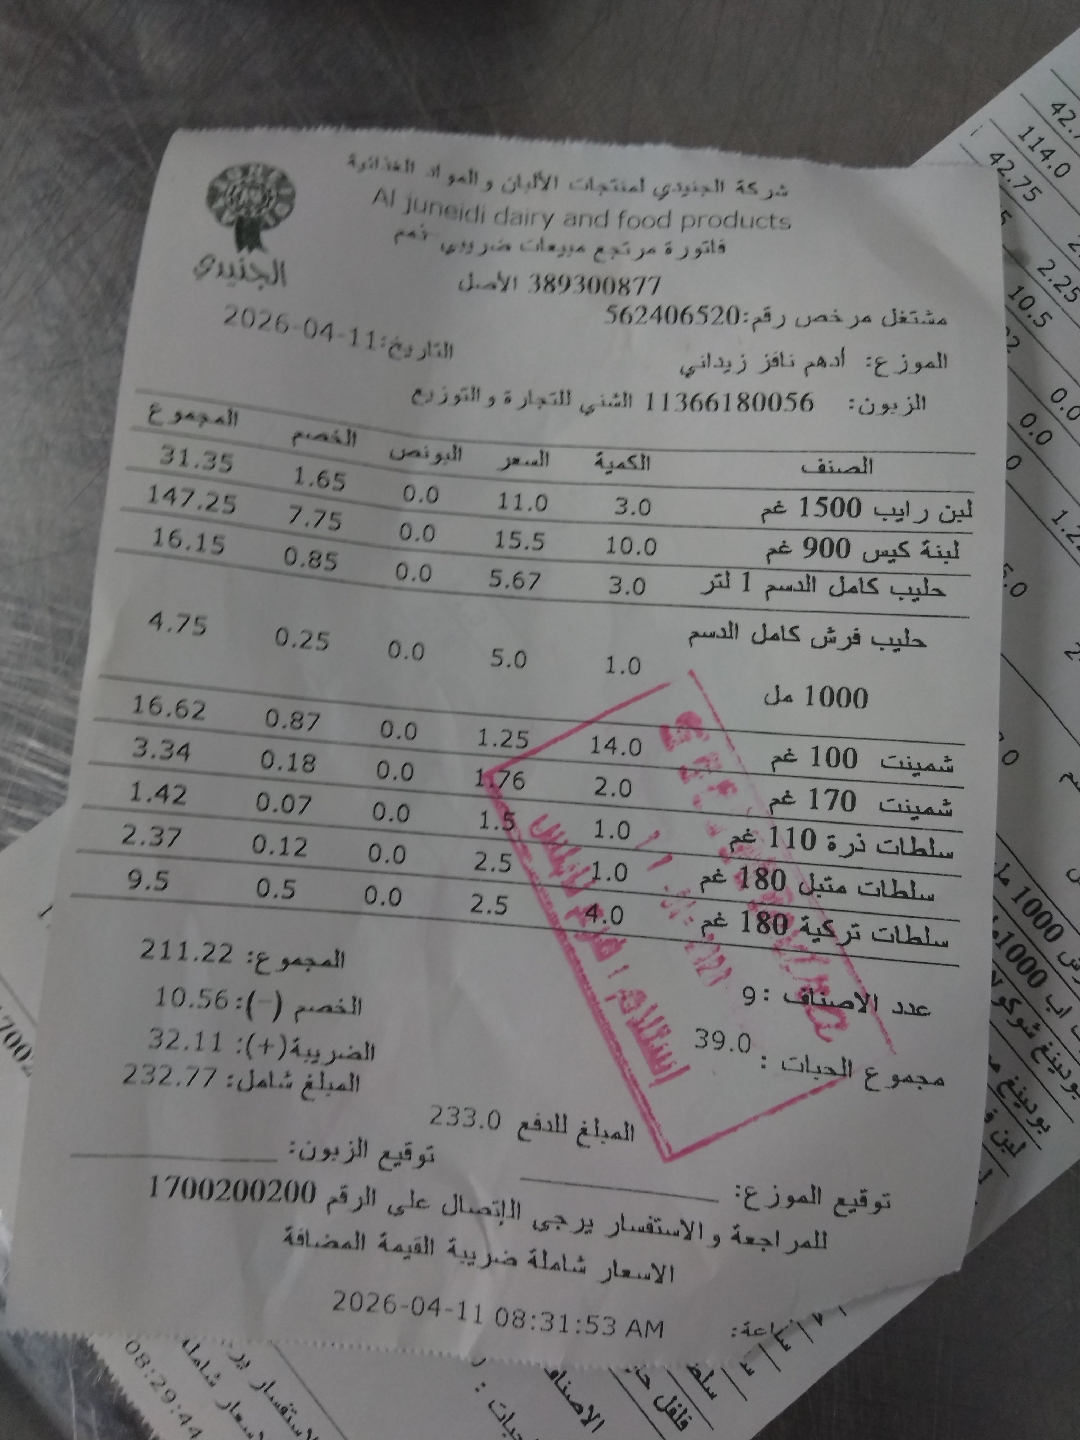 الجنيدي
شركة الجنيدي لمنتجات الألبان والمواد الغذائية
Al juneidi dairy and food products
فاتورة مرتجع مبيعات ضريبي
389300877 الأصل
مشتغل مرخص رقم:562406520
التاريخ:2026-04-11
الموزع: أدهم نافز زيداني
الزبون: 11366180056 الشني للتجارة والتوزيع
الصنف الكمية السعر البونص الخصم المجموع
لبن رايب 1500 غم 3.0 11.0 0.0 1.65 31.35
لبنة كيس 900 غم 10.0 15.5 0.0 7.75 147.25
حليب كامل الدسم 1 لتر 3.0 5.67 0.0 0.85 16.15
حليب فرش كامل الدسم 1.0 5.0 0.0 0.25 4.75
1000 مل
شمينت 100 غم 14.0 1.25 0.0 0.87 16.62
شمينت 170 غم 2.0 1.76 0.0 0.18 3.34
سلطات ذرة 110 غم 1.0 1.5 0.0 0.07 1.42
سلطات متبل 180 غم 1.0 2.5 0.0 0.12 2.37
سلطات تركية 180 غم 4.0 2.5 0.0 0.5 9.5
عدد الاصناف : 9
مجموع الحبات : 39.0
المجموع: 211.22
الخصم (-): 10.56
الضريبة(+): 32.11
المبلغ شامل: 232.77
المبلغ للدفع 233.0
توقيع الموزع: توقيع الزبون:
للمراجعة والاستفسار يرجى الإتصال على الرقم 1700200200
الاسعار شاملة ضريبة القيمة المضافة
ساعة: 2026-04-11 08:31:53 AM
42.75
114.0
2.25
10.5
0.0
0.0
08:29:44